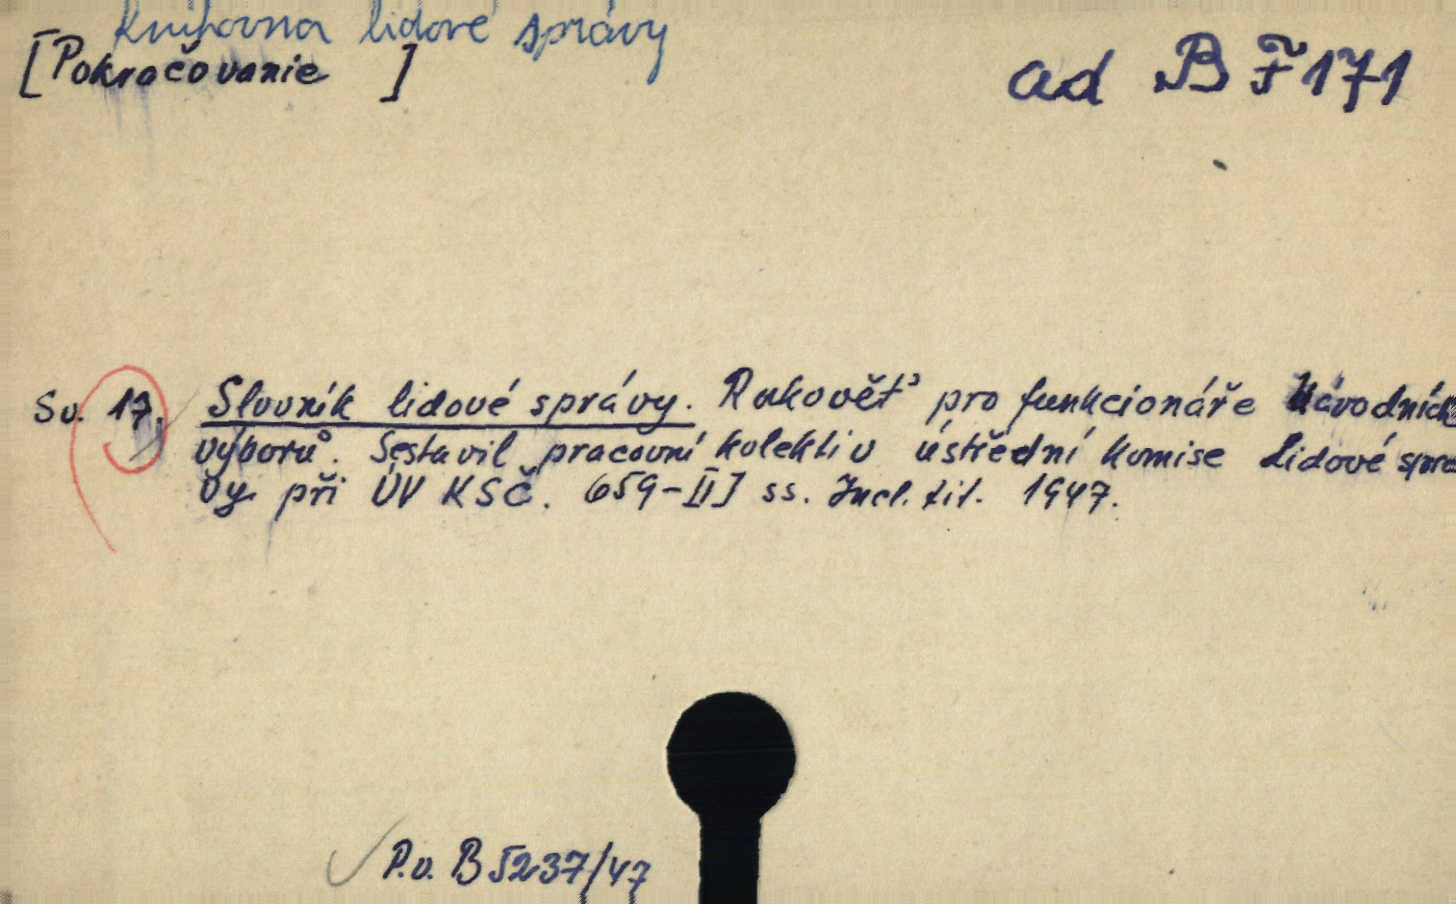 Knihovna lidové správy
[Pokračovanie ]
ad BF 171
Sv. 17. Slovník lidové správy. Rukověť pro funkcionáře Národních
výborů. Sestavil pracovní kolektiv ústřední komise lidové sprá
vy při ÚV KSČ. 659-II] ss. Incl. tit. 1947.
P.v. B 5237/47